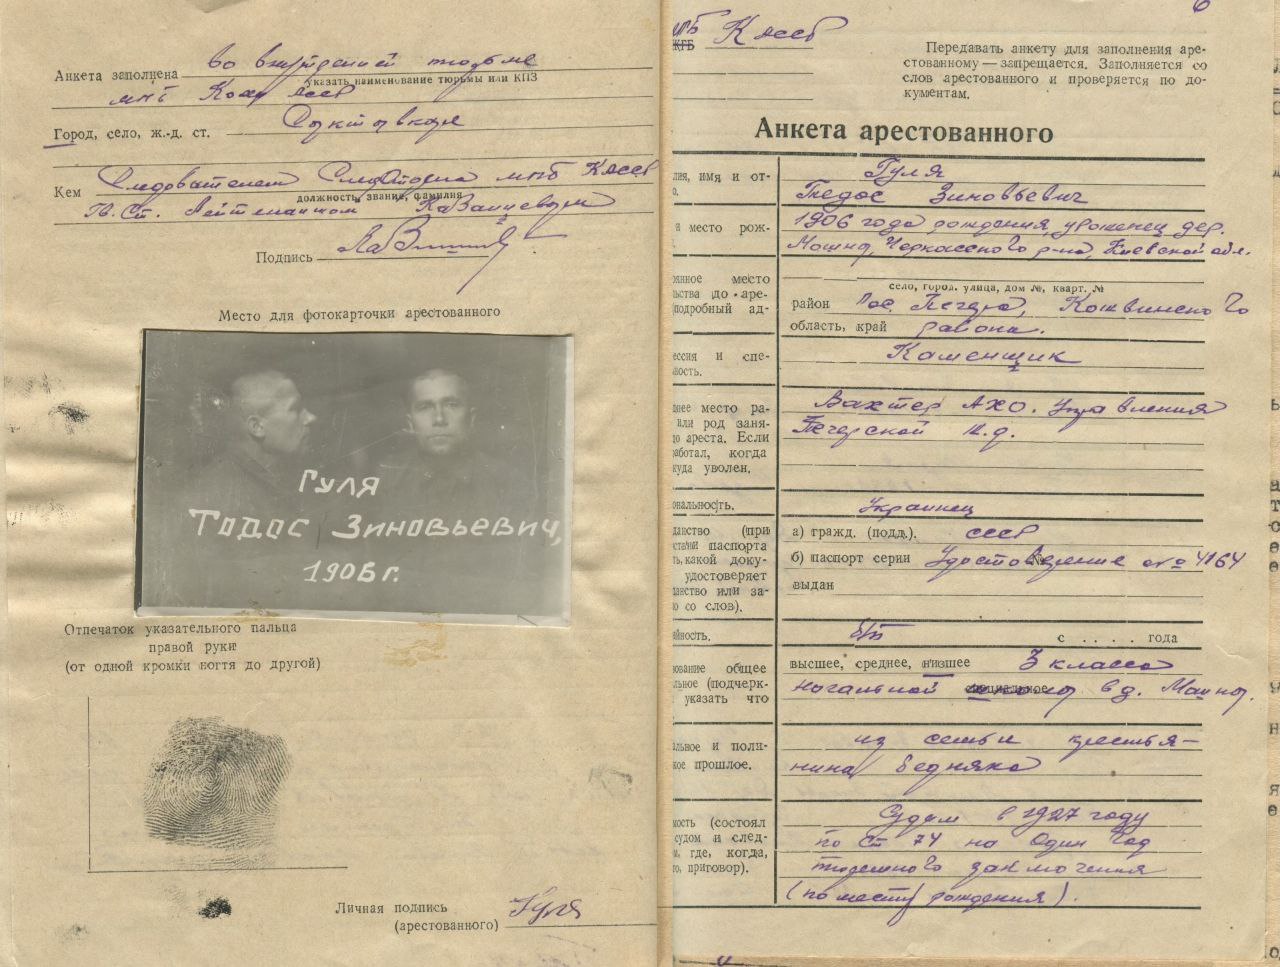 Анкета заполнена во внутренней тюрьме
указать наименование тюрьмы или КПЗ
МГБ Коми АССР
Город, село, ж.-д. ст. Сыктывкар
Кем Следователем Следотдела МГБ КАССР
должность, звание, фамилия
Гв. Ст. Лейтенантом
Подпись
Место для фотокарточки арестованного
ГУЛЯ
ТОДОС ЗИНОВЬЕВИЧ,
1906 г.
Отпечаток указательного пальца
правой руки
(от одной кромки ногтя до другой)
Личная подпись
(арестованного) Гуля
6
МГБ КАССР
ЖГБ
Передавать анкету для заполнения аре-
стованному — запрещается. Заполняется со
слов арестованного и проверяется по до-
кументам.
Анкета арестованного
лия, имя и от- Гуля
о. Тодос Зиновьевич
и место рож- 1906 года рождения, уроженец дер.
Мошны, Черкасского р-на, Киевской обл.
янное место
ьства до аре-
подробный ад-
село, город, улица, дом №, кварт. №
район Пос. Печора, Кожвинского
область, край района.
ессия и спе- Каменщик
ность.
нее место ра- Вахтер АХО Управления
или род заня- Печорской ж.д.
до ареста. Если
работал, когда
куда уволен.
ональность. Украинец
данство (при
паспорта
ть, какой доку-
удостоверяет
данство или за-
о со слов).
а) гражд. (подд.). СССР
б) паспорт серии № Удостоверение № 4164
выдан
ийность. б/п с . . . . года
ование общее
льное (подчерк-
указать что
высшее, среднее, низшее 3 класса
начальной специальное школы в д. Мошны.
льное и поли- из семьи крестья-
кое прошлое. нина бедняка
мость (состоял
судом и след-
м, где, когда,
о, приговор).
Судим в 1927 году
по Ст 74 на Один год
тюремного заключения
(по месту рождения).